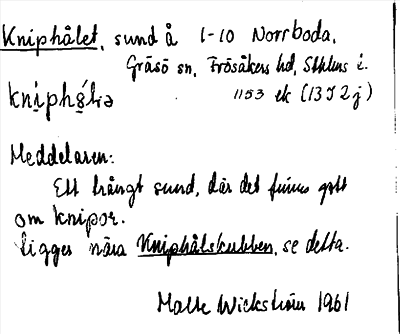 Kniphålet, sund å 1-10 Norrboda,
Gräsö sn, Frösåkers hd, Sthlms l.
1153 ek (13 I 2 j)
Meddelaren:
Ett trångt sund, där det finns gott
om knipor.
Ligger nära Kniphålskubben, se detta.
Malte Wickström 1961